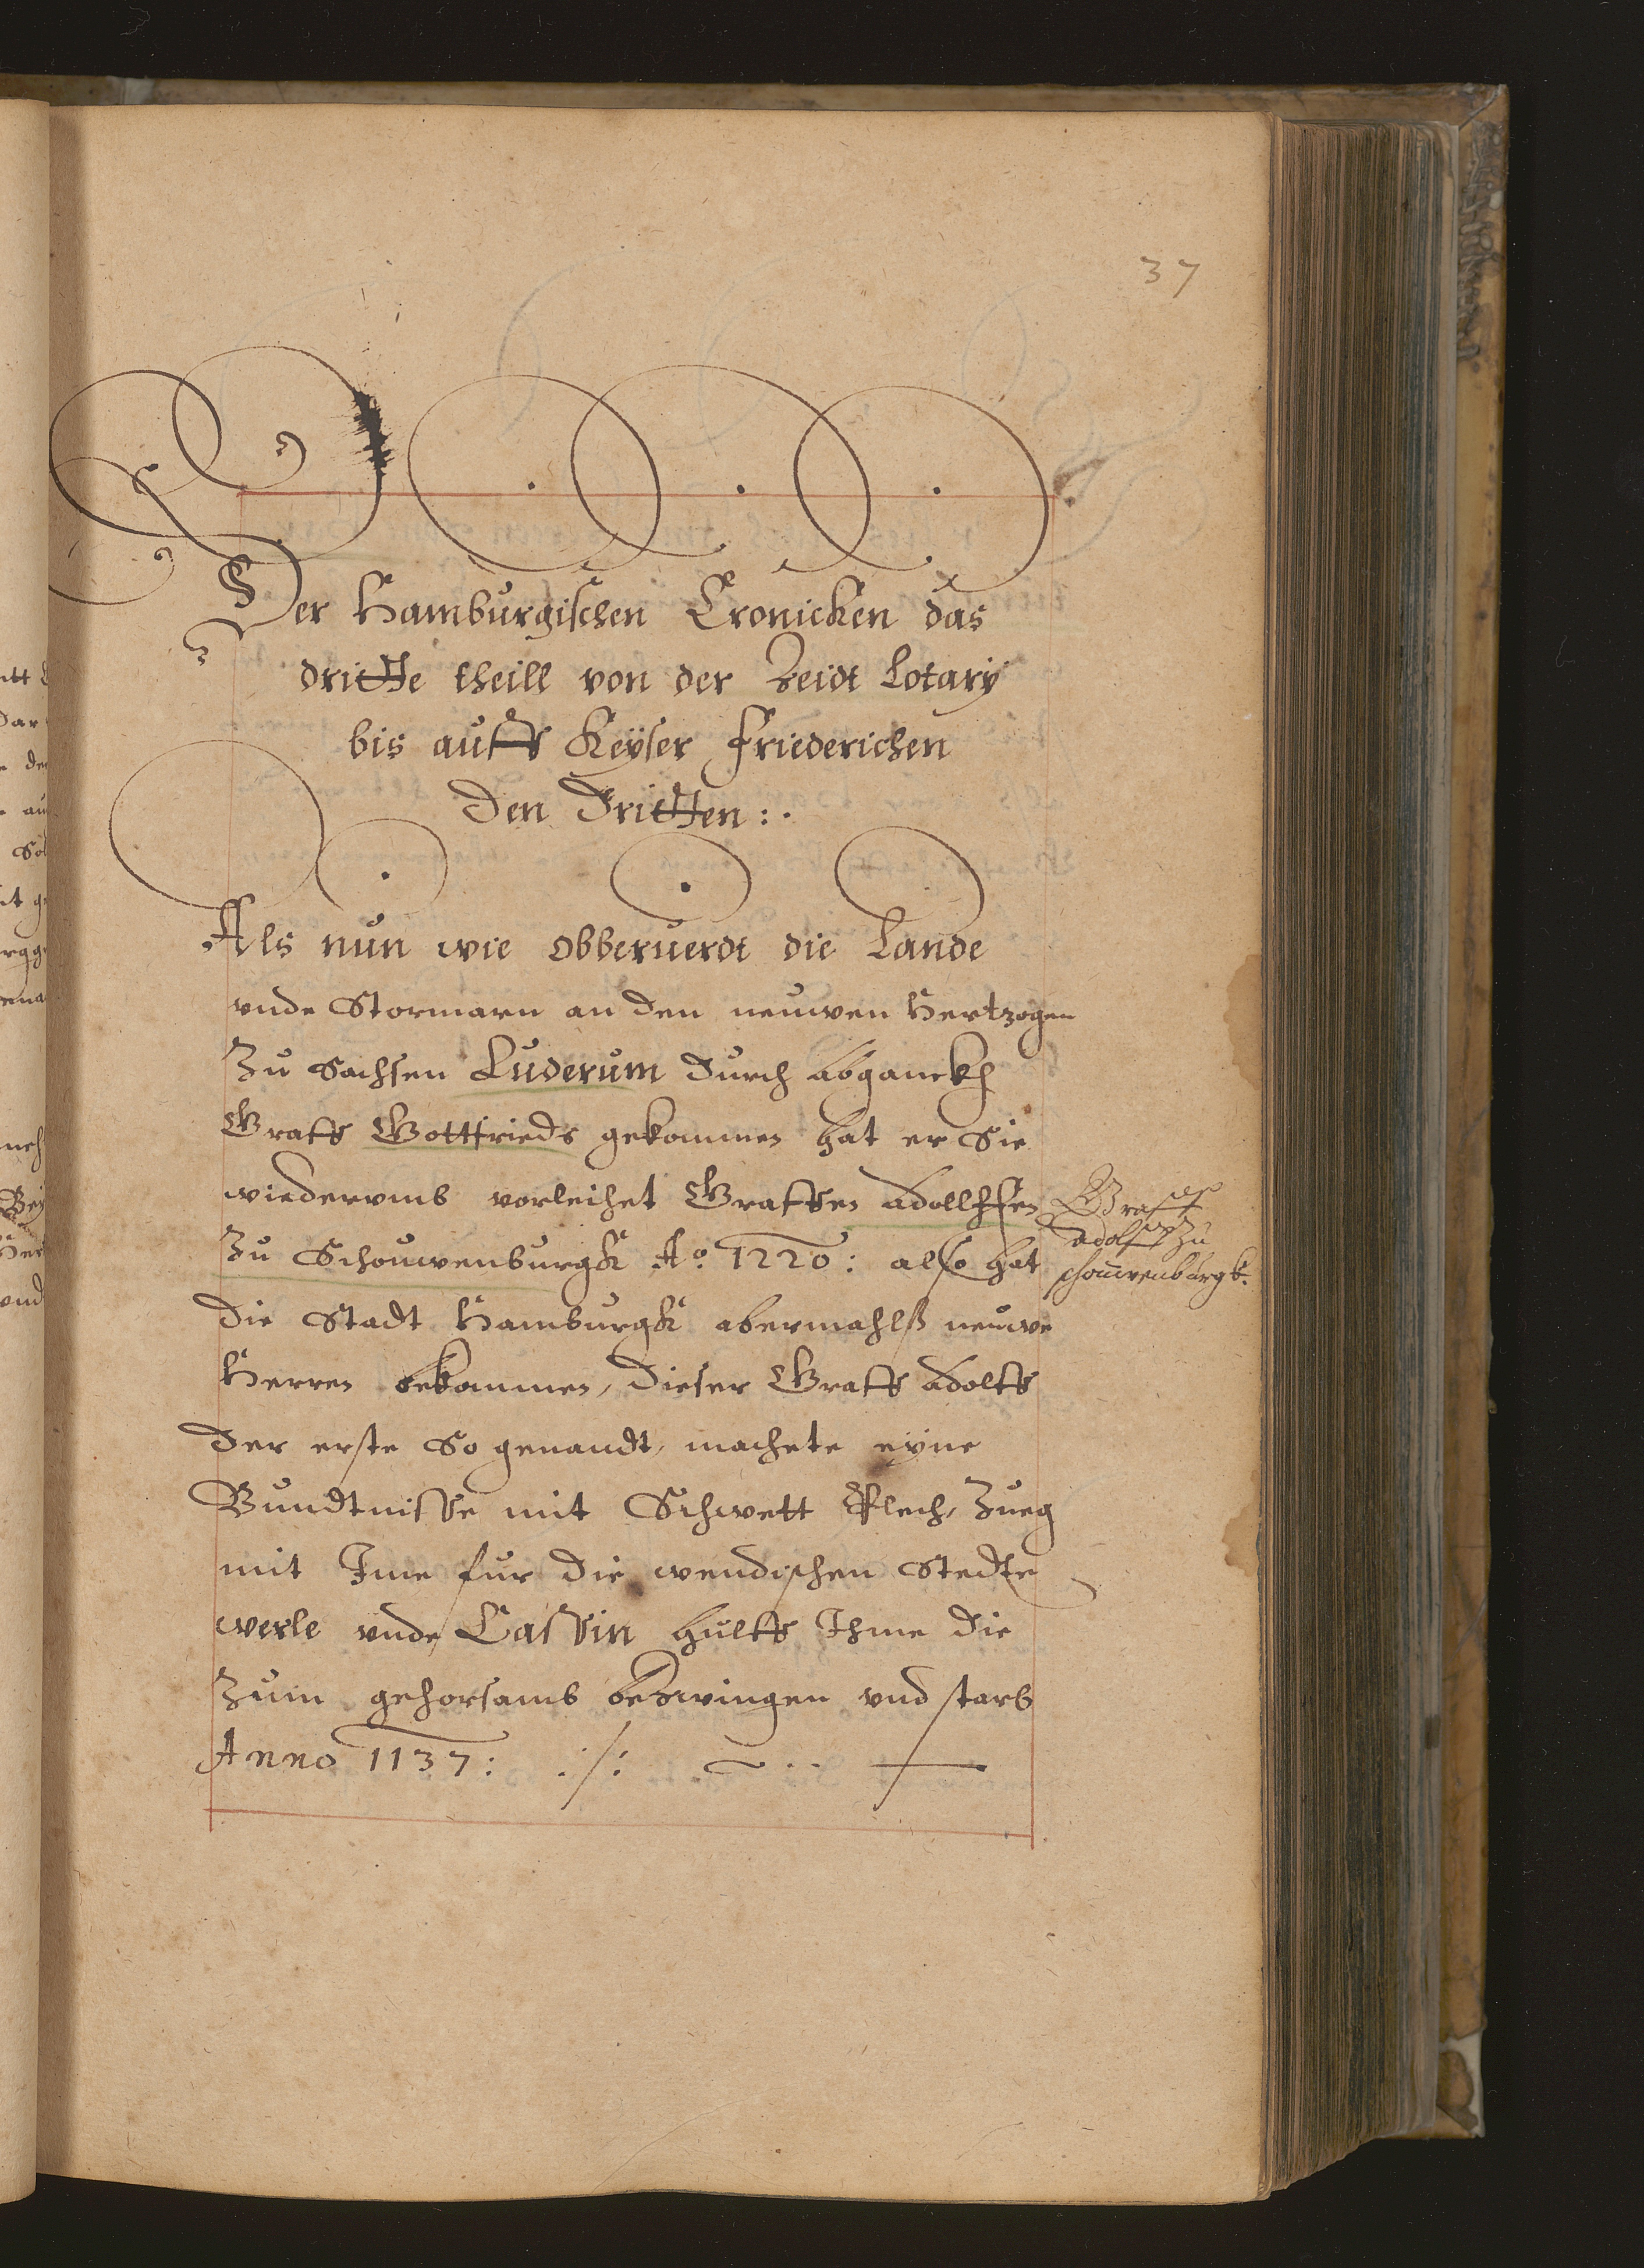 37
Der Hamburgischen Cronicken das
dritte theill von der Zeidt Lotarÿ
bis auffs Keÿser Friederichen
Den Dritten :.
Als nun wie obberuerdt die Lande
vnde Stormarn an den neuwen Hertzogen
Zu Sachsen Luderum durch abganckh
Graffs Gottfrieds gekommen hat er Sie
wiedervmb vorleihet Graffen Adollffen
Zu Schouwenburgk Ao. 1220: also hat
Graff
Adolff zu
schouwenburgk.
die Stadt Hamburgk abermahlß neuwe
Herren bekommen, dieser Graff Adolff
der erste So genandt, machete eyne
Bundtnisse mit Schwett Plech, Zueg
mit Ime fur die wendischen Stedte
werle vnde Cassin hulff Ihme die
Zum gehorsamb bezwingen vnd starb
Anno 1137: